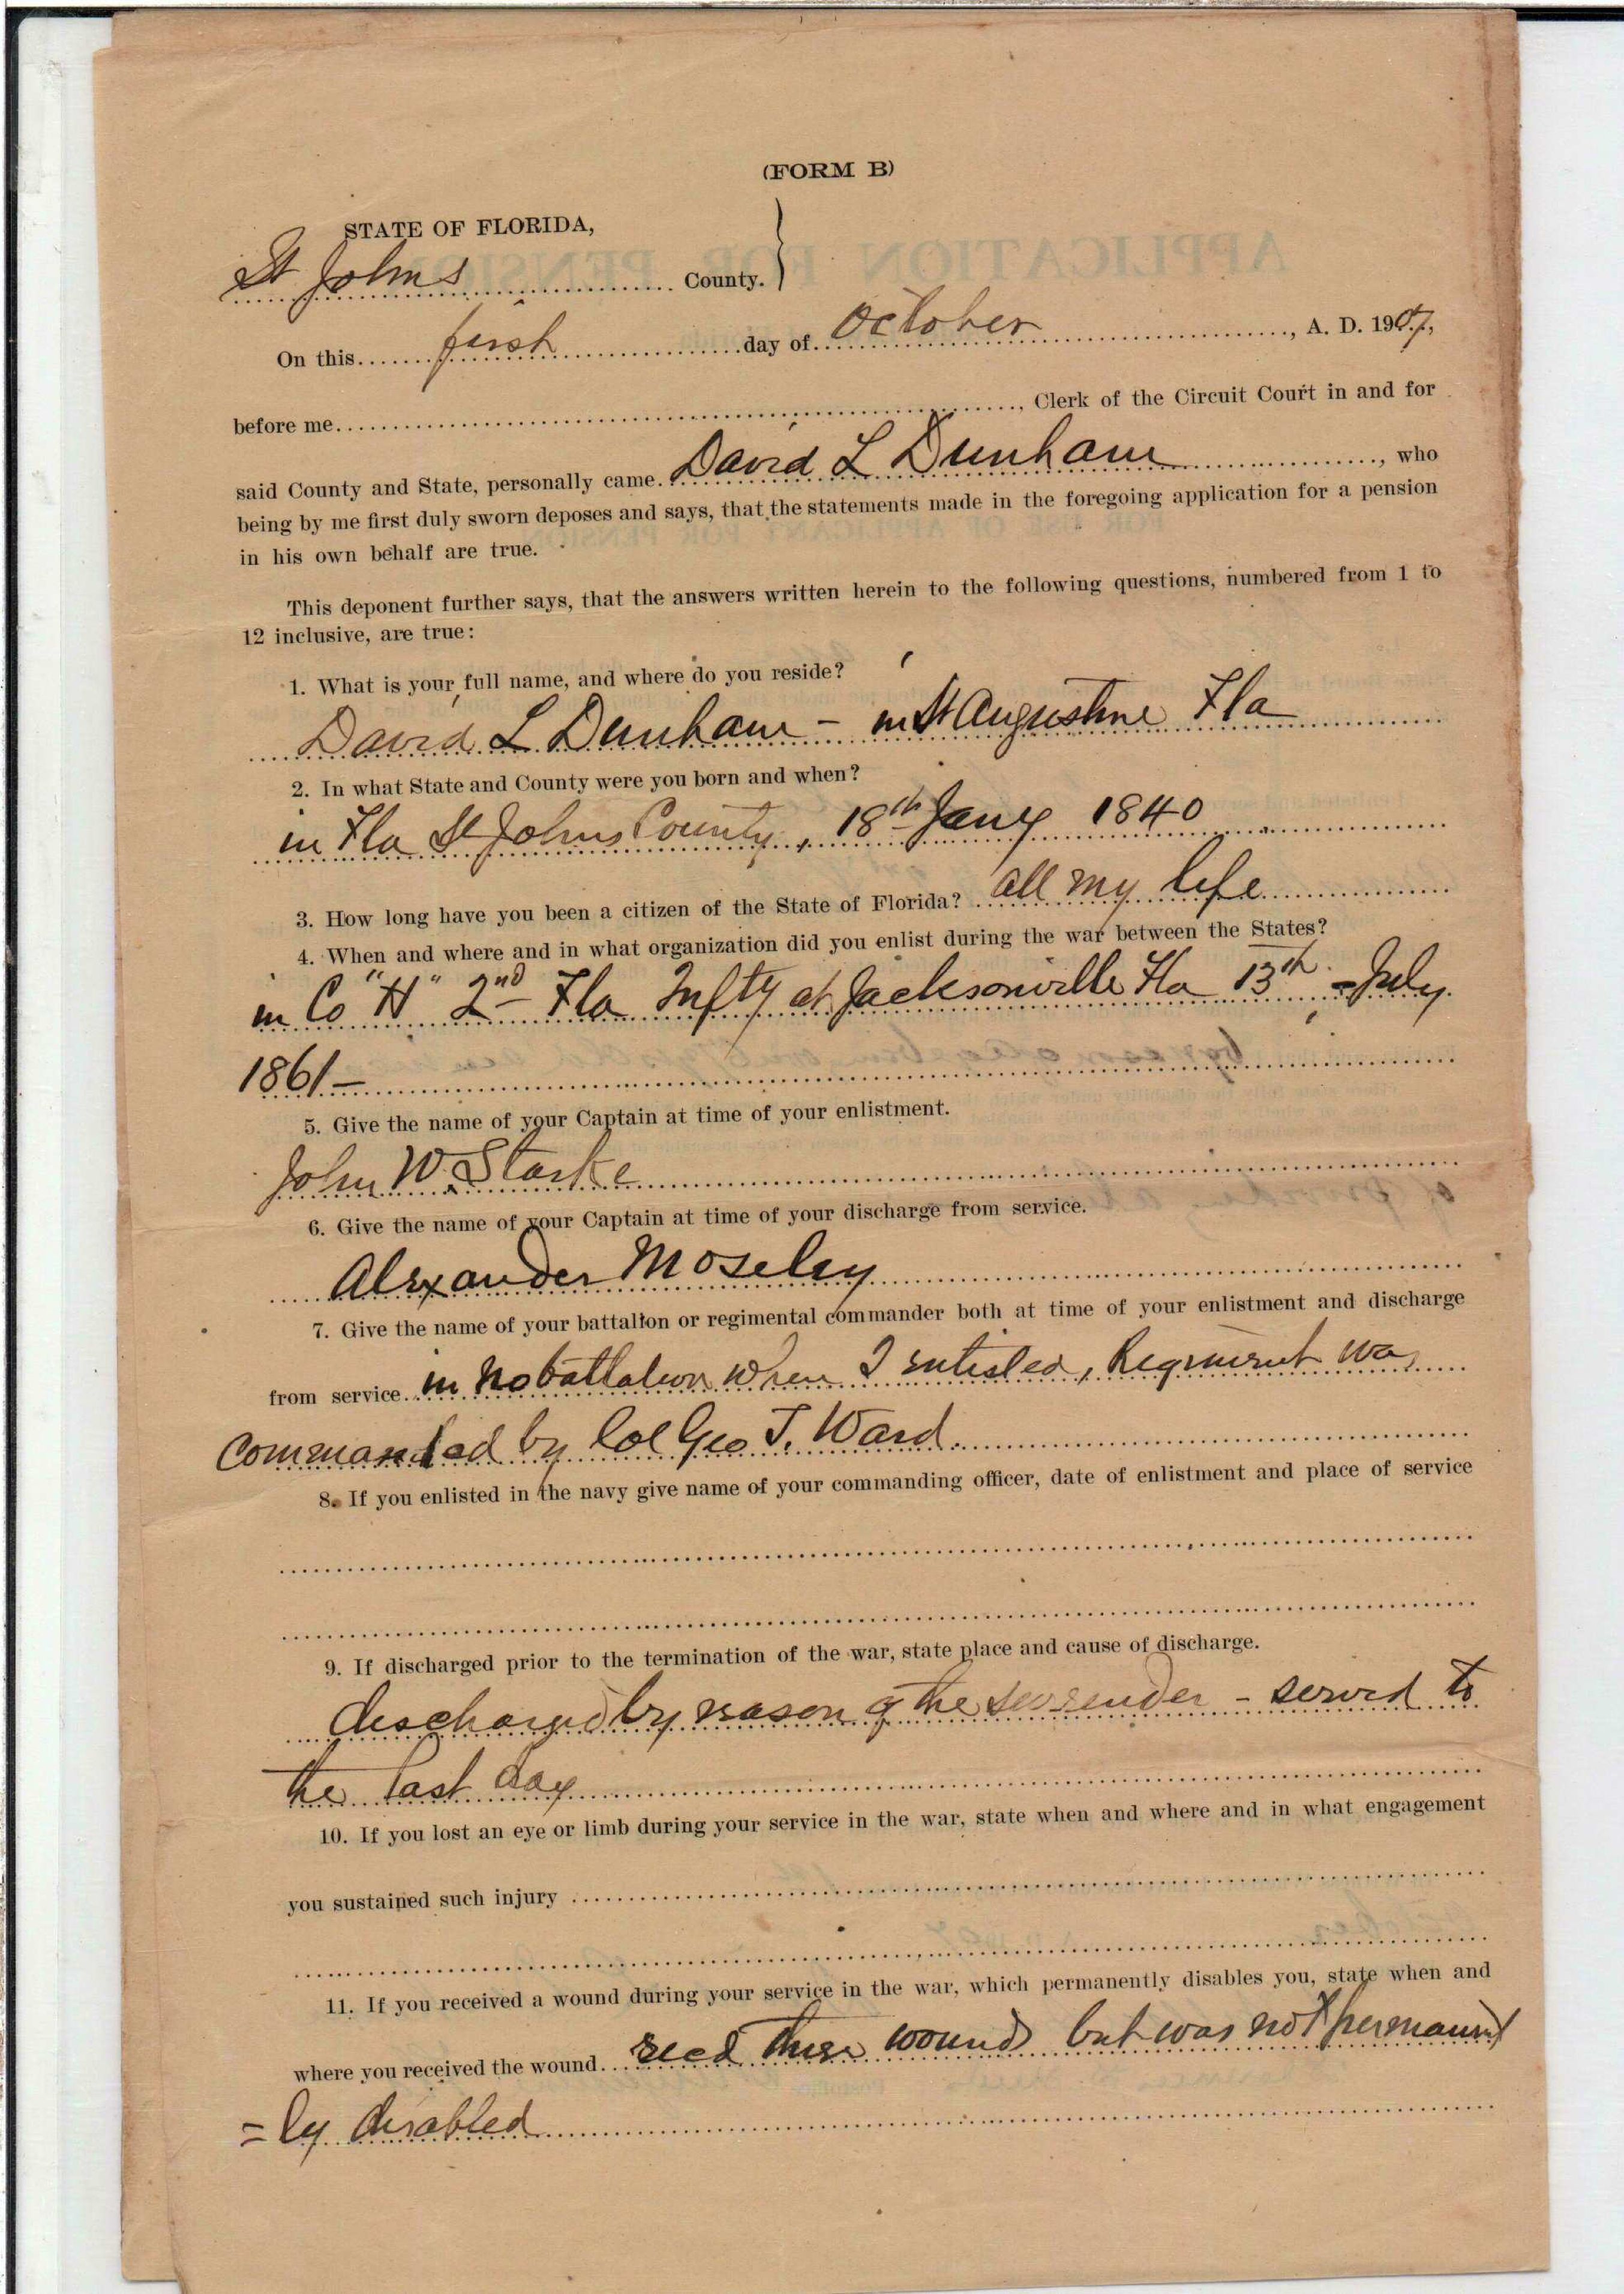 (FORM B)
STATE OF FLORIDA,
St Johns County.
On this first day of October, A. D. 1907,
before me, Clerk of the Circuit Court in and for
said County and State, personally came David L Dunham, who
being by me first duly sworn deposes and says, that the statements made in the foregoing application for a pension
in his own behalf are true.
This deponent further says, that the answers written herein to the following questions, numbered from 1 to
12 inclusive, are true:
1. What is your full name, and where do you reside?
David L Dunham - in St Augustine Fla
2. In what State and County were you born and when?
in Fla St Johns County, 18th Jany 1840
3. How long have you been a citizen of the State of Florida? all my life
4. When and where and in what organization did you enlist during the war between the States?
in Co "H" 2nd Fla Infty at Jacksonville Fla 13th - July
1861 -
5. Give the name of your Captain at time of your enlistment.
John W. Starke
6. Give the name of your Captain at time of your discharge from service.
Alexander Moseley
7. Give the name of your battalion or regimental commander both at time of your enlistment and discharge
from service in no battalion when I enlisted, Regiment was
commanded by Col Geo T. Ward
8. If you enlisted in the navy give name of your commanding officer, date of enlistment and place of service
9. If discharged prior to the termination of the war, state place and cause of discharge.
discharged by reason of the surrender - served to
the last day
10. If you lost an eye or limb during your service in the war, state when and where and in what engagement
you sustained such injury
11. If you received a wound during your service in the war, which permanently disables you, state when and
where you received the wound. recd three wounds but was not permanent
=ly disabled